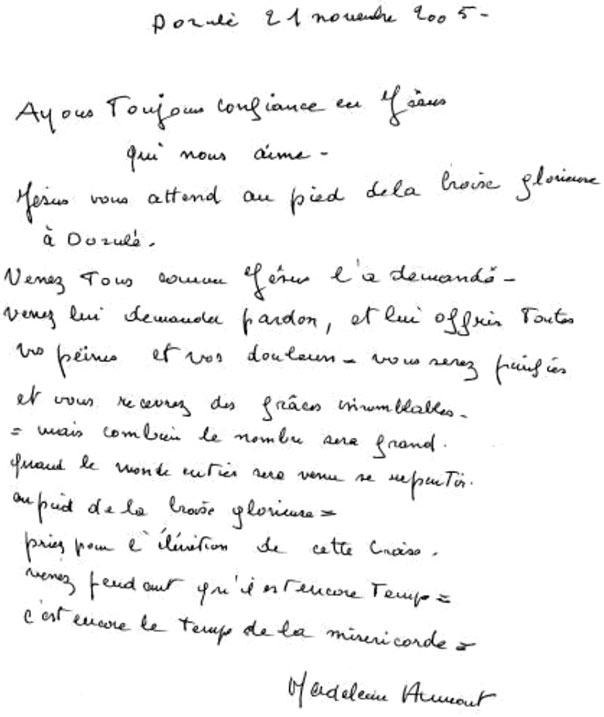 Dozulé 21 novembre 2005-
Ayons Toujours confiance en Jésus
qui nous aime-
Jésus vous attend au pied de la Croix glorieuse
à Dozulé.
Venez Tous comme Jésus l'a demandé-
venez lui demander pardon, et lui offrir Toutes
vos peines et vos douleurs- vous serez purifiés
et vous recevrez des grâces innombrables-
= mais combien le nombre sera grand.
quand le monde entier sera venu se repentir.
au pied de la Croix glorieuse=
priez pour l'élévation de cette Croix.
venez pendant qu'il est encore Temps=
c'est encore le temps de la misericorde=
Madeleine Aumont